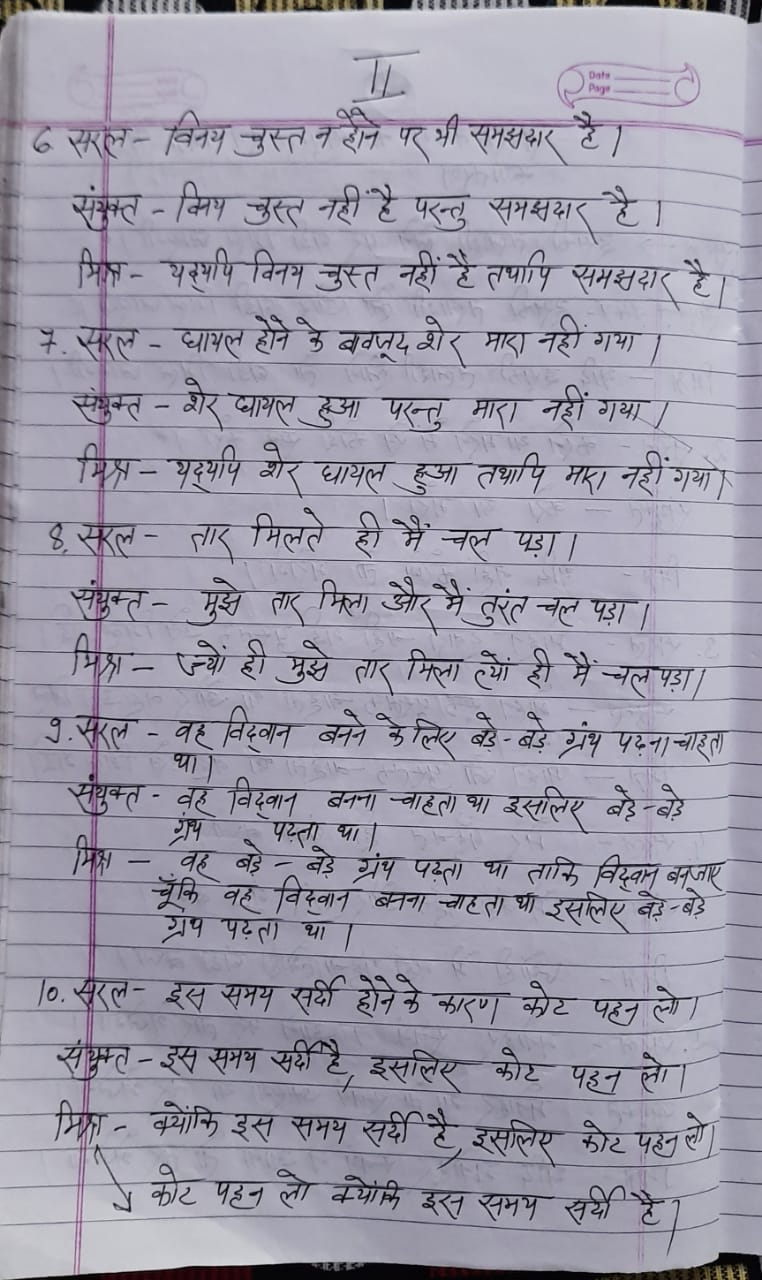 II
Date
Page
6 सरल - विनय चुस्त न होने पर भी समझदार है।
संयुक्त - विनय चुस्त नहीं है परन्तु समझदार है।
मिश्र - यद्यपि विनय चुस्त नहीं है तथापि समझदार है।
7. सरल - घायल होने के बवजूद शेर मारा नहीं गया।
संयुक्त - शेर घायल हुआ परन्तु मारा नहीं गया।
मिश्र - यद्यपि शेर घायल हुआ तथापि मारा नहीं गया।
8. सरल - तार मिलते ही मैं चल पड़ा।
संयुक्त - मुझे तार मिला और मैं तुरंत चल पड़ा।
मिश्र - ज्यों ही मुझे तार मिला त्यों ही मैं चल पड़ा।
9. सरल - वह विद्वान बनने के लिए बड़े-बड़े ग्रंथ पढ़ना चाहता
था।
संयुक्त - वह विद्वान बनना चाहता था इसलिए बड़े-बड़े
ग्रंथ पढ़ता था।
मिश्र - वह बड़े-बड़े ग्रंथ पढ़ता था ताकि विद्वान बनजाए
चूँकि वह विद्वान बनना चाहता था इसलिए बड़े-बड़े
ग्रंथ पढ़ता था।
10. सरल - इस समय सर्दी होने के कारण कोट पहन लो।
संयुक्त - इस समय सर्दी है, इसलिए कोट पहन लो।
मिश्र - क्योंकि इस समय सर्दी है, इसलिए कोट पहन लो।
कोट पहन लो क्योंकि इस समय सर्दी है।